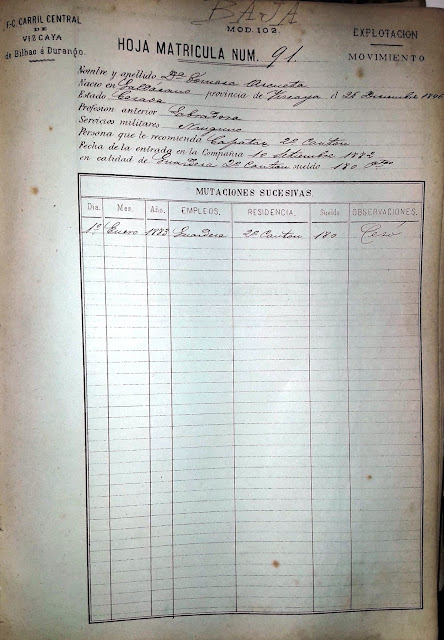 BAJA
F-C CARRIL CENTRAL
DE
VIZCAYA
de Bilbao á Durango.
MOD. 102.
HOJA MATRICULA NUM. 91.
EXPLOTACION
MOVIMIENTO
Nombre y apellido Dª
Nacio en provincia de Vizcaya el 26 Diciembre
Estado Casada
Profesion anterior Labradora
Servicios militares Ninguno
Persona que le recomiendó Capataz 2º Canton
Fecha de la entrada en la Compañia 1º Setiembre 1882
en calidad de Guardesa 2º Canton sueldo 180
MUTACIONES SUCESIVAS.
Dia. Mes. Año. EMPLEOS. RESIDENCIA. Sueldo OBSERVACIONES.
1º Enero 1883 Guardesa 2º Canton 180 Cesó